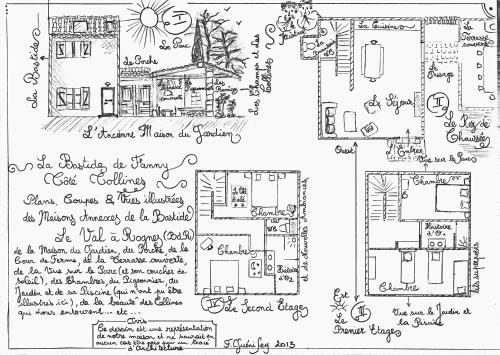 I
La Bastide
Le Parc
Le Porche
L'Ancienne Maison du Gardien
Les Champs et les Collines
La Cuisine
Le Séjour
L'Entrée
La Terrasse couverte
Le Passage
II
Le Rez de Chaussée
Ouest
Vue sur le Parc
La Bastide de Fanny
Côté Collines
Plans, Coupes & Vues illustrées
des Maisons Annexes de la Bastide
Le Val à Rognes (BdR)
de la Maison du Gardien, du Porche, de la
Cour de Ferme, de la Terrasse couverte,
de la Vue sur le Parc (et son coucher de
soleil), des Chambres, du Pigeonnier, du
Jardin et de sa Piscine (qui n'ont pu être
illustrés ici), de la beauté des Collines
qui nous entourent... etc...
Avis
Ce dessin est une représentation
de notre maison et ne saurait en
aucun cas être pris pour un tracé
d'Architecture
Chambre
WC
Chambre
IV
Le Second Etage
F. Guéniſey 2013
Chambre
Histoire d'O
Chambre
Est
III
Le Premier Etage
Vue sur le Jardin et
la Piscine